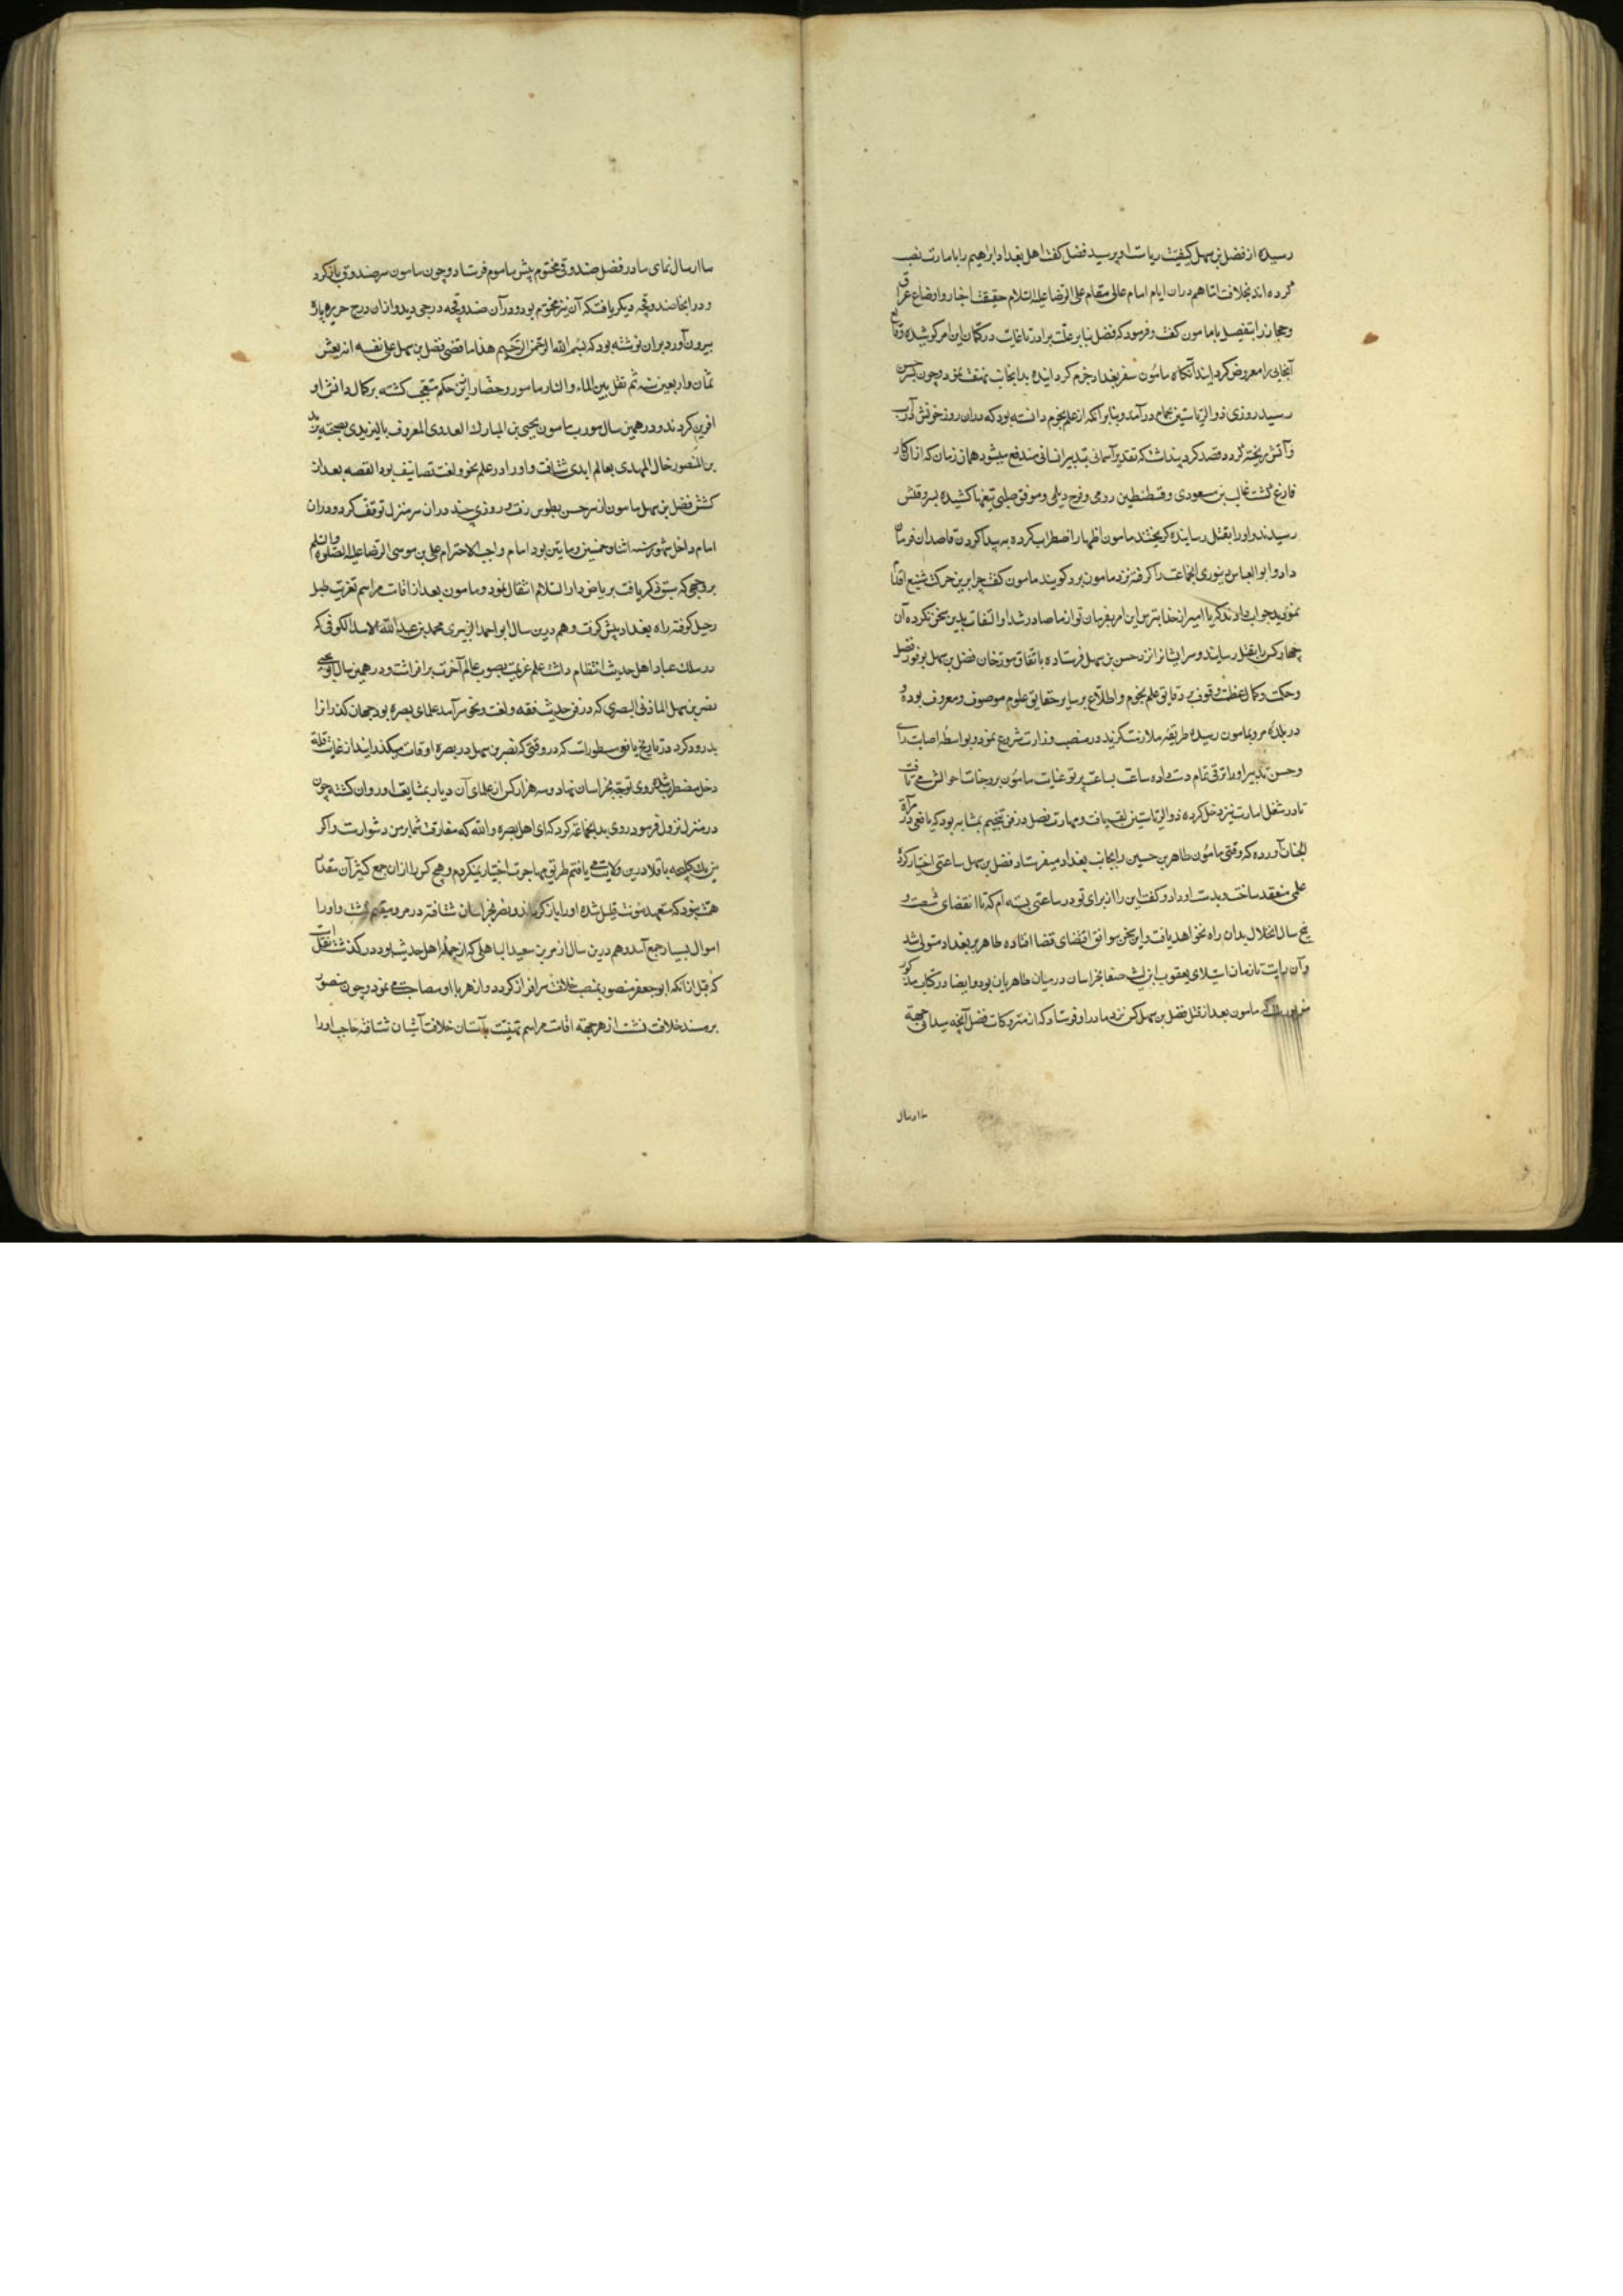 رسیده از فضل بن سهل کیفیت ریاست او پرسید فضل گفت اهل بغداد ابراهیم را بامارت نصب
کرده اند نه بخلافت اما هم دران ایام امام عالی مقام علی الرضا علیه السلام حقیقت اخبار و اوضاع عراق
و حجاز را بتفصیل با مامون گفت و فرمود که فضل بنا بر علت برادر تا غایت در کتمان این امر کوشیده وقایع
آنجایی را معروض نکردانید آنگاه مامون سفر بغداد جزم کردانیده بدانجانب نهضت نمود و چون بسرخس
رسید روزی ذو الریاستین بحمام درآمد و بنابر آنکه از علم نجوم دانسته بود که دران روز خونش در آب
و آتش ریخته گردد فصد کرد پنداشت که تقدیر آسمانی بتدبیر انسانی مندفع میشود همان زمان که ازان کار
فارغ گشت غالب بن مسعودی و قسطنطین رومی و فرح دیلمی و موفق صقلبی تیغها کشیده بسر وقتش
رسیدند و او را بقتل رسانیده گریختند مامون اظهار اضطراب کرده به پیدا کردن قاصدان فرمان
داد و ابو العباس دینوری آنجماعت را گرفته نزد مامون برد گویند مامون گفت چرا برین حرکت شنیع اقدام
نمودید جواب دادند که یا امیر از خدا بترس این امر بفرمان تو از ما صادر شد او التفات بدین سخن نکرده آن
چهار کس را بقتل رسانید و سر ایشانرا نزد حسن بن سهل فرستاد باتفاق مورخان فضل بن سهل بوفور فضل
و حکمت و کمال عظمت و وقوف بر دقایق علم نجوم و اطلاع بر سایر حقایق علوم موصوف و معروف بوده و
در بلده مرو بمامون رسیده طریقه ملازمت گزید در منصب وزارت شروع نمود و بواسطه اصابت رای
و حسن تدبیر او را ترقی تمام دست داده ساعت بساعت پرتو عنایت مامون بر وجنات احوالش می تافت
تا در شغل امارت نیز دخل کرده ذو الریاستین لقب یافت و مهارت فضل در فن تنجیم بمثابه بود که یافعی در مرآة
الجنان آورده که وقتی مامون طاهر بن حسین را بجانب بغداد میفرستاد فضل بن سهل ساعتی اختیار کرده
علمی منعقد ساخت و بدست او داد و گفت این را از برای تو در ساعتی بسته ام که تا انقضای شصت و
پنج سال اختلال بدان راه نخواهد یافت و این سخن موافق اقتضای قضا افتاده طاهر بر بغداد مستولی شد
و آن رایت تا زمان استیلای یعقوب بن لیث صفا بخراسان در میان طاهریان بود و ایضا در کتاب مذکور
مسطور است که مامون بعد از قتل فضل بن سهل کس نزد مادر او فرستاد که از متروکات فضل آنچه میدانی جهة
ما ارسال
ما ارسال نمای مادر فضل صندوقی مختوم پیش ماموم فرستاد و چون مامون سر صندوق باز کرد
و در انجا صندوقچه دیگر یافت که آن نیز مختوم بود و در آن صندوقچه درجی دید و ازان درج حریر پاره
بیرون آورد بران نوشته بود که بسم الله الرحمن الرحیم هذا ما قضی فضل بن سهل علی نفسه انه یعیش
ثمان و اربعین سنه ثم یقتل بین الماء و النار مامور و حضار ازین حکم متعجب گشته بر کمال دانش او
افرین کردند و در همین سال مودب مامون یحیی بن المبارک العدوی المعروف بالیزیدی بصحبته یزید
بن المنصور خال المهدی بعالم ابدی شتافت و او را در علم نحو و لغت تصانیف بود القصه بعد از
کشتن فضل بن سهل مامون از سرخس بطوس رفت و روزی چند دران سر منزل توقف کرد و دران
امام داخل شهور سنه اثنا و خمسین و مایتین بود امام واجب الاحترام علی بن موسی الرضا علیه الصلوة والسلم
بر وجهی که سبق ذکر یافت بریاض دار السلام انتقال نمود و مامون بعد از اقامت مراسم تعزیت طبل
رحیل کوفته راه بغداد پیش گرفت و هم درین سال ابو احمد الزبیری محمد بن عبد الله الاسد الکوفی که
در سلک عباد اهل حدیث انتظام داشت علم عزیمت بصوب عالم آخرت برافراشت و در همین سال ابو یحیی
نضر بن سهل المازنی البصری که در فن حدیث فقه و لغت و نحو سر آمد علمای بصره بود جهان گذرانرا
بدرود کرد در تاریخ یافعی مسطور است که در وقتی که نضر بن سهل در بصره اوقات میگذرانید از غایت قلة
دخل مضطر شده روی توجه بخراسان نهاد و سه هزار کس از علمای آن دیار بمشایعت او روان گشته چون
در منزل نزول فرمود روی بدانجماعة کرد که ای اهل بصره والله که مفارقت شما بر من دشوارست و اگر
من یک کیلجه باقلا درین ولایت می یافتم طریق مهاجرت اختیار نمیکردم و هیچ کس را ازان جمع کثیر آن مقدار
همت نبود که متعهد مونت قلیل شده او را باز گرداند و نضر بخراسان شتافته در مرو مقیم گشت و او را
اموال بسیار جمع آمد و هم درین سال ازهر بن سعید الباهلی که از جمله اهل حدیث بود در گذشت نقلست
که قبل از آنکه ابو جعفر منصور بمنصب خلافت سرافراز گردد و ازهر با او مصاحبت می نمود و چون منصور
بر مسند خلافت نشست ازهر جهة اقامت مراسم تهنیت بآستان خلافت آشیان شتافته حاجب او را